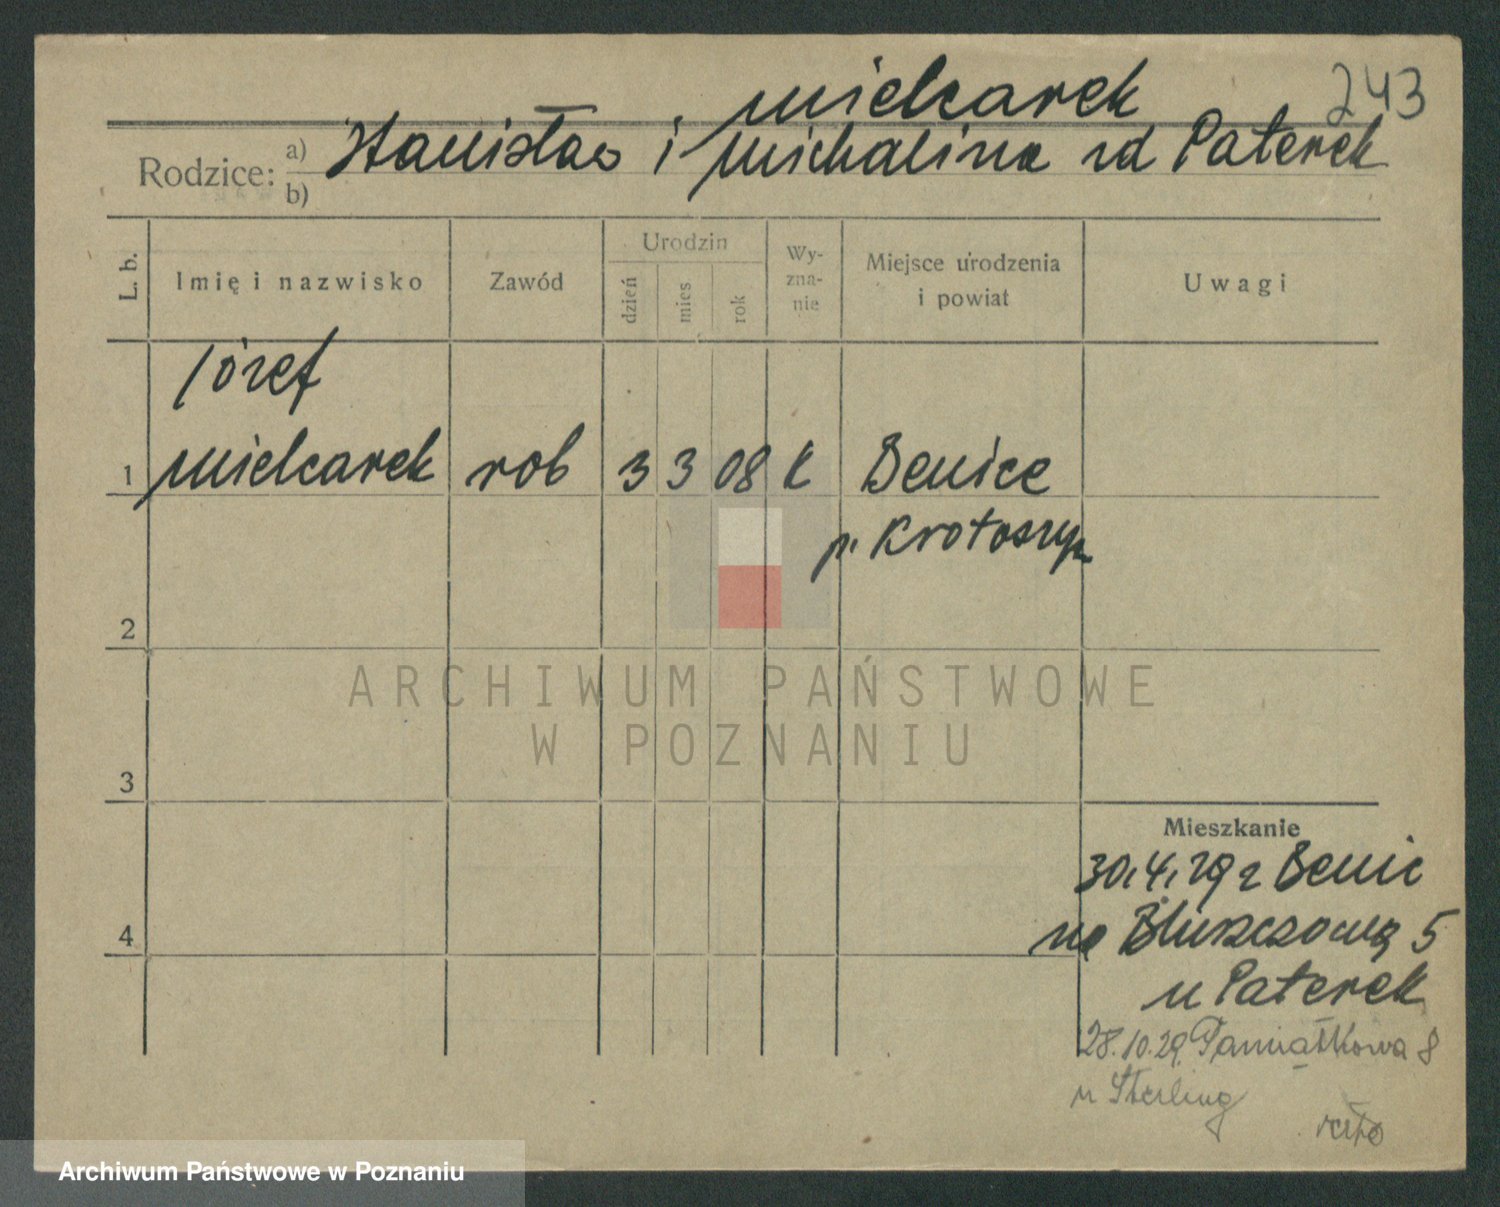 243
Mielcarek
Rodzice: a) Stanisław i Michalina rd Paterek
b)
L. b.
Imię i nazwisko
Zawód
Urodzin
dzień
mies
rok
Wy-
zna-
nie
Miejsce urodzenia
i powiat
Uwagi
Józef
1 Mielcarek rob 3 3 08 k Benice
p. Krotoszyn
2
3
4
ARCHIWUM PAŃSTWOWE
W POZNANIU
Mieszkanie
30.4.29 z Benic
na Bluszczową 5
u Paterek
28.10.29. Pamiątkowa 8
u Sterling
Archiwum Państwowe w Poznaniu